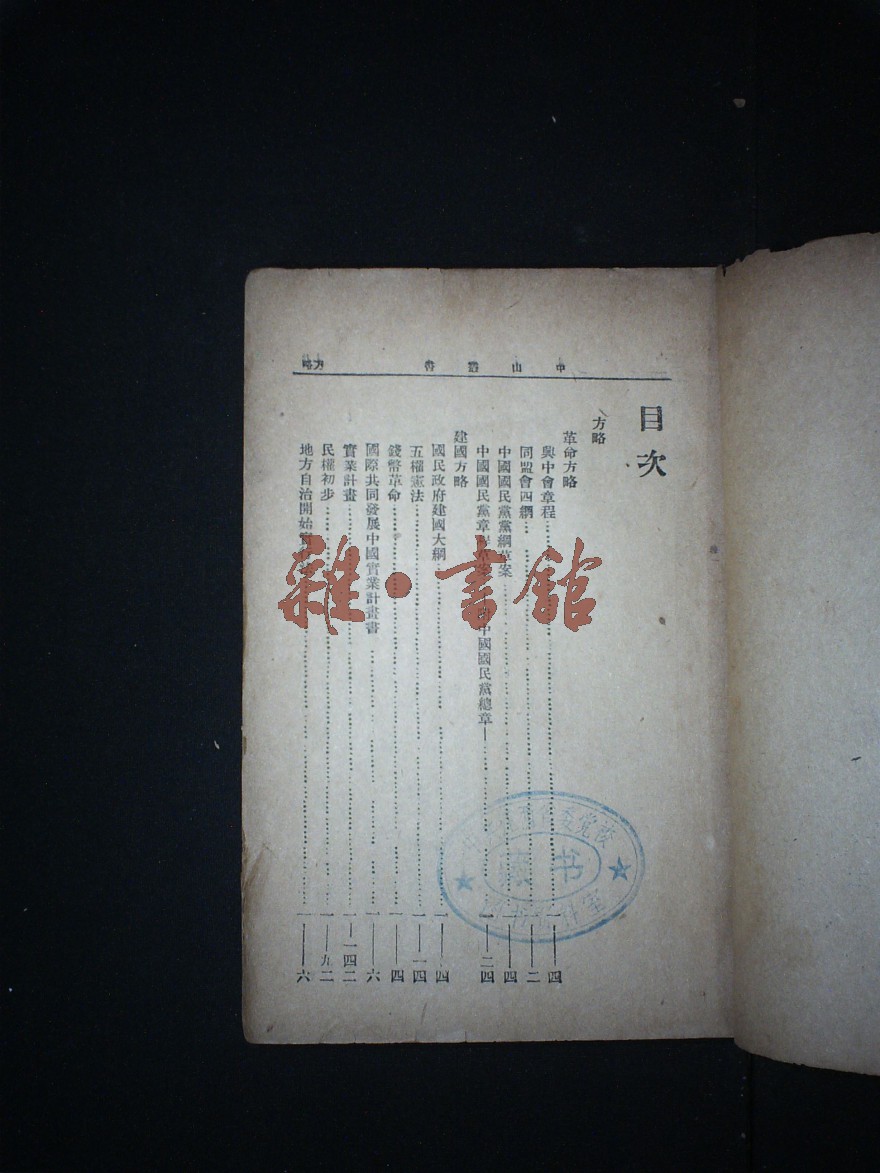 中山叢書 方略
目次
方略
革命方略
興中會章程…一——四
同盟會四綱…一——二
中國國民黨黨綱草案…一——四
中國國民黨章程草案 中國國民黨總章—…一——二四
建國方略
國民政府建國大綱…一——四
五權憲法…一——一四
錢幣革命…一——四
國際共同發展中國實業計畫書…一——六
實業計畫…一——一四二
民權初步…一——九二
地方自治開始實…一——六
雜·書館
党校
藏书